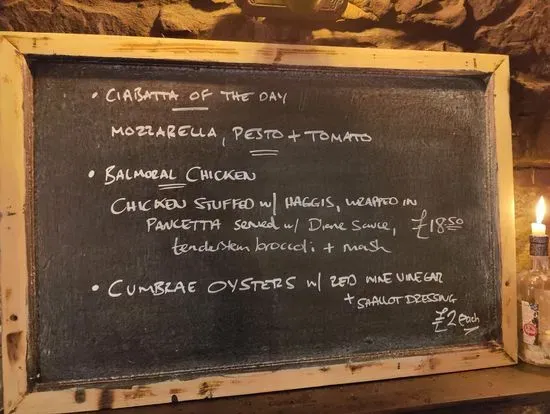 • CIABATTA OF THE DAY
MOZZARELLA, PESTO + TOMATO
• BALMORAL CHICKEN
CHICKEN STUFFED w/ HAGGIS, WRAPPED IN
PANCETTA served w/ Diane Sauce, £18.50
tenderstem broccoli + mash
• CUMBRAE OYSTERS w/ RED WINE VINEGAR
+ SHALLOT DRESSING
£2 each